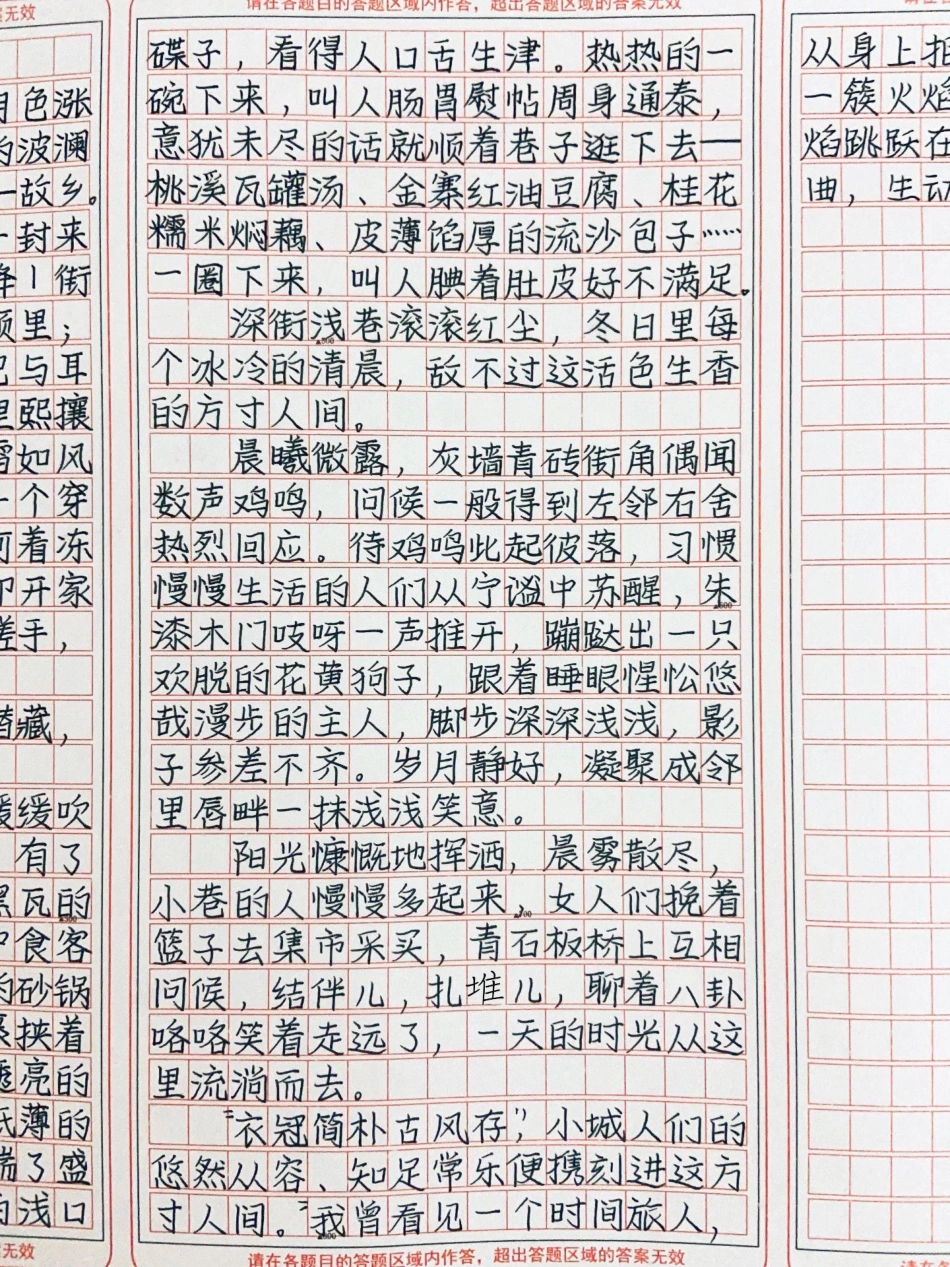 案无效
色涨
的波澜
故乡。
封来
街
里；
与耳
里熙攘
如风
一个穿
着冻
开家
手，
藏，
缓吹
有了
瓦的
食客
的砂锅
挟着
亮的
薄的
了盛
浅口
无效
请在各题目的答题区域内作答，超出答题区域的答案无效
碟子，看得人口舌生津。热热的一
碗下来，叫人肠胃熨帖周身通泰，
意犹未尽的话就顺着巷子逛下去——
桃溪瓦罐汤、金寨红油豆腐、桂花
糯米焖藕、皮薄馅厚的流沙包子……
一圈下来，叫人腆着肚皮好不满足。
深街浅巷滚滚红尘，冬日里每
个冰冷的清晨，敌不过这活色生香
的方寸人间。
晨曦微露，灰墙青砖街角偶闻
数声鸡鸣，问候一般得到左邻右舍
热烈回应。待鸡鸣此起彼落，习惯
慢慢生活的人们从宁谧中苏醒，朱
漆木门吱呀一声推开，蹦跶出一只
欢脱的花黄狗子，跟着睡眼惺忪悠
哉漫步的主人，脚步深深浅浅，影
子参差不齐。岁月静好，凝聚成邻
里唇畔一抹浅浅笑意。
阳光慷慨地挥洒，晨雾散尽，
小巷的人慢慢多起来，女人们挽着
篮子去集市采买，青石板桥上互相
问候，结伴儿，扎堆儿，聊着八卦
咯咯笑着走远了，一天的时光从这
里流淌而去。
“衣冠简朴古风存”，小城人们的
悠然从容、知足常乐便携刻进这方
寸人间。我曾看见一个时间旅人，
请在各题目的答题区域内作答，超出答题区域的答案无效
从身上
一簇火焰
焰跳跃在
曲，生动